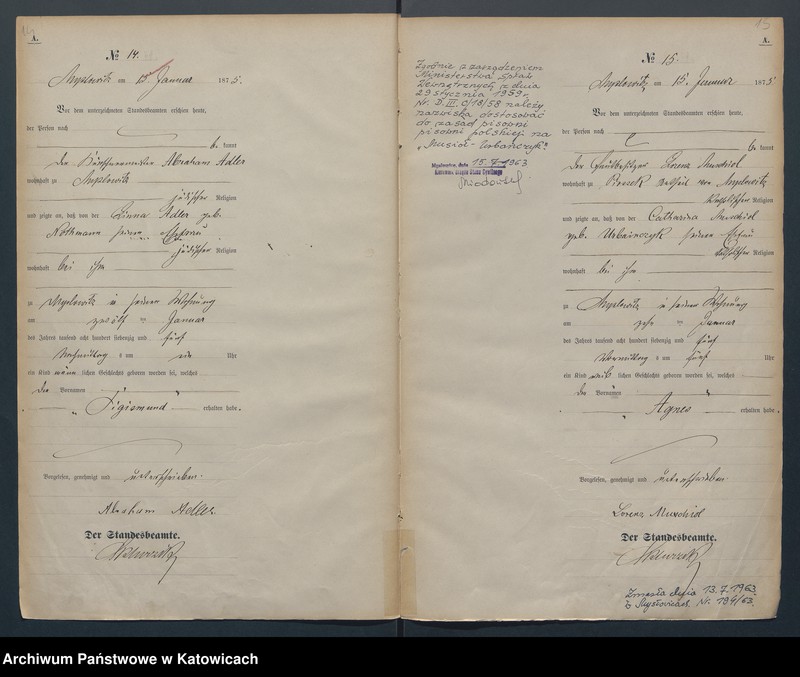 14
A.
№ 14.
Myslowitz am 15 Januar 1875.
Vor dem unterzeichneten Standesbeamten erschien heute,
der Person nach
be kannt
der Abraham Adler
wohnhaft zu Myslowitz
jüdischer Religion
und zeigte an, daß von der Linna Adler geb.
Rothmann seiner Ehefrau
jüdischer Religion
wohnhaft bei ihm
zu Myslowitz in seiner Wohnung
am zwölf ten Januar
des Jahres tausend acht hundert siebenzig und fünf
Nachmittag s um ein Uhr
ein Kind männ lichen Geschlechts geboren worden sei, welches
den Vornamen
„Sigismund" erhalten habe.
Vorgelesen, genehmigt und unterschrieben.
Abraham Adler
Der Standesbeamte.
Zgodnie z zarządzeniem
Ministerstwa Spraw
Wewnętrznych z dnia
29 stycznia 1959 r.
Nr. D. III. C/18/58 należy
nazwiska dostosować
do zasad pisowni
pisowni polskiej na
„Musioł - Urbańczyk"
Mysłowice, dnia 15.7.1963
15
A.
№ 15.
Myslowitz am 15 Januar 1875
Vor dem unterzeichneten Standesbeamten erschien heute,
der Person nach
be kannt
der Lorenz Muschiol
wohnhaft zu Myslowitz
katholischer Religion
und zeigte an, daß von der Catharina Muschiol
geb. Urbainczyk seiner Ehefrau
katholischer Religion
wohnhaft bei ihm
zu Myslowitz in seiner Wohnung
am ten Januar
des Jahres tausend acht hundert siebenzig und fünf
Vormittag s um fünf Uhr
ein Kind weib lichen Geschlechts geboren worden sei, welches
den Vornamen
„Agnes" erhalten habe.
Vorgelesen, genehmigt und unterschrieben.
Lorenz Muschiol
Der Standesbeamte.
Zmarła dnia 13.7.1963
w Mysłowicach Nr. 199/63.
Archiwum Państwowe w Katowicach